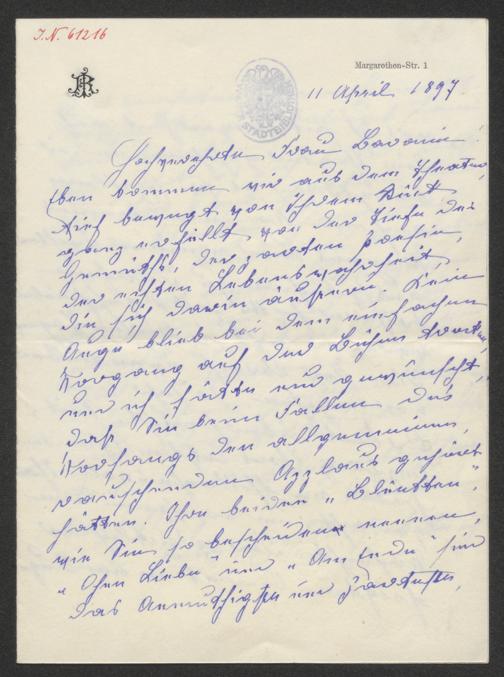 I.N. 61216
Margarethen-Str. 1
11 April 1897.
Hochverehrte Frau Baronin!
Eben kommen wir aus dem Theater,
tief bewegt von Ihrem Stück,
ganz erfüllt von der Tiefe des
Gemüths, der zarten Poesie,
der echten Lebenswahrheit,
die sich darin äussern. Kein
Auge blieb bei dem einfachen
Vorgang auf der Bühne trocken,
und ich hätte nur gewünscht,
daß Sie beim Fallen des
Vorhangs den allgemeinen,
rauschenden Applaus gehört
hätten. Ihre beiden "Bluetten",
wie Sie sie so bescheiden nennen,
"Ohne Liebe" und "Am Ende" sind
das Anmuthigste und Zarteste,